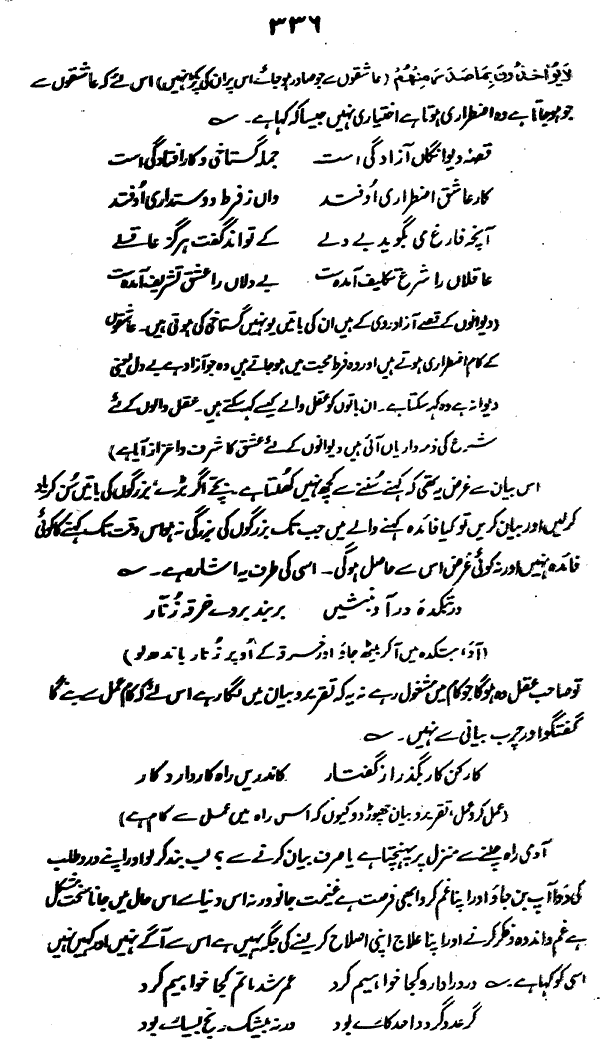 ۳۳۶
لَا يُوَاخَذُونَ بِمَا صَدَرَ مِنْهُمْ (عاشقوں سے جو صادر ہو جائے اس پر ان کی پکڑ نہیں) اس لئے کہ عاشقوں سے
جو ہو جاتا ہے وہ اضطراری ہوتا ہے اختیاری نہیں جیسا کہ کہا ہے۔ ؎
قصۂ دیوانگاں آزادگی است جملہ گستاخی و کار افتادگی است
کار عاشق اضطراری اوفتد واں ز فرط دوستداری اوفتد
آنچہ فارغ می بگوید بے دلے کے تواند گفت ہرگز عاقلے
عاقلاں را شرع تکلیف آمدہ ست بے دلاں را عشق تشریف آمدہ ست
(دیوانوں کے قصے آزادروی کے ہیں ان کی باتیں یونہیں گستاخی کی ہوتی ہیں۔ عاشقوں
کے کام اضطراری ہوتے ہیں اور وہ فرط محبت میں ہو جاتے ہیں وہ جو آزاد ہے بے دل یعنی
دیوانہ ہے وہ کہہ سکتا ہے۔ ان باتوں کو عقل والے کیسے کہہ سکتے ہیں۔ عقل والوں کے لئے
شرع کی ذمہ داریاں آئی ہیں دیوانوں کے لئے عشق کا شرف و اعزاز آیا ہے)
اس بیان سے غرض یہ تھی کہ کہنے سننے سے کچھ نہیں کھلتا ہے۔ بچے اگر بڑے بزرگوں کی باتیں سن کر یاد
کر لیں اور بیان کریں تو کیا فائدہ کہنے والے میں جب تک بزرگوں کی بزرگی نہ ہو اس وقت تک کہنے کا کوئی
فائدہ نہیں اور نہ کوئی غرض اس سے حاصل ہوگی۔ اسی کی طرف یہ اشارہ ہے۔ ؎
در بتکدہ در آ و بنشیں بر بند بروے خرقہ زنّار
(آؤ، بتکدہ میں آکر بیٹھ جاؤ اور خرقے کے اُوپر زُنّار باندھ لو)
تو صاحب عقل وہ ہوگا جو کام میں مشغول رہے نہ یہ کہ تقریر و بیان میں لگا رہے اس لئے کہ کام عمل سے بنے گا
گفتگو اور چرب بیانی سے نہیں۔ ؎
کار کن کار بگذر از گفتار کاندریں راہ کار دارد کار
(عمل کرو عمل، تقریر و بیان چھوڑ دو کیوں کہ اس راہ میں عمل سے کام ہے)
آدمی راہ چلنے سے منزل پر پہنچتا ہے یا صرف بیان کرنے سے؟ لب بند کر لو اور اپنے درد و طلب
کی دوا آپ بن جاؤ اور اپنا غم کرو ابھی فرصت ہے غنیمت جانو ورنہ اس دنیا سے اس حال میں جانا سخت مشکل
ہے غم و اندوہ و فکر کرنے اور اپنا علاج اپنی اصلاح کرلینے کی جگہ یہیں ہے اس سے آگے نہیں اور کہیں نہیں
اسی کو کہا ہے۔ ؎ درد را دارو کجا خواہیم کرد عمر شد ماتم کجا خواہیم کرد
گر عدد گردد احد کارے بود ورنہ بیشک رنج بسیارے بود